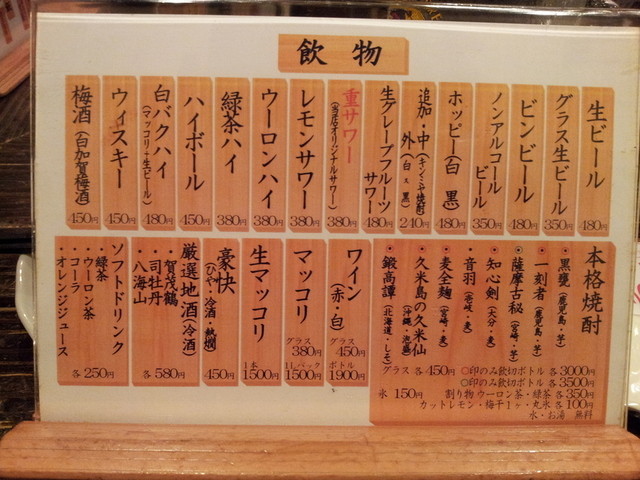 飲物
生ビール 480円
グラス生ビール 350円
ビンビール 480円
ノンアルコールビール 350円
ホッピー(白 黒) 480円
追加・中(キンミヤ焼酎)
外(白・黒) 240円
生グレープフルーツサワー 480円
重サワー(当店オリジナルサワー) 380円
レモンサワー 380円
ウーロンハイ 380円
緑茶ハイ 380円
ハイボール 450円
白バクハイ(マッコリ+生ビール) 480円
ウィスキー 450円
梅酒(白加賀梅酒) 450円
本格焼酎
黒甕(鹿児島・芋)
一刻者(鹿児島・芋)
薩摩古秘(宮崎・芋)
知心剣(大分・麦)
音羽(壱岐・麦)
麦全麹(宮崎・麦)
久米島の久米仙(沖縄・泡盛)
鍛高譚(北海道・しそ)
グラス 各450円
○印のみ飲切ボトル 各3000円
◎印のみ飲切ボトル 各3500円
氷 150円
割り物 ウーロン茶・緑茶 各350円
カットレモン・梅干1ヶ・丸氷 各100円
水・お湯 無料
ワイン(赤・白)
グラス 450円
ボトル 1900円
マッコリ
グラス 380円
1Lパック 1500円
生マッコリ
1本 1500円
豪快(ひや・冷酒・熱燗) 450円
厳選地酒(冷酒)
・賀茂鶴
・司牡丹
・八海山
各580円
ソフトドリンク
・緑茶
・ウーロン茶
・コーラ
・オレンジジュース
各250円